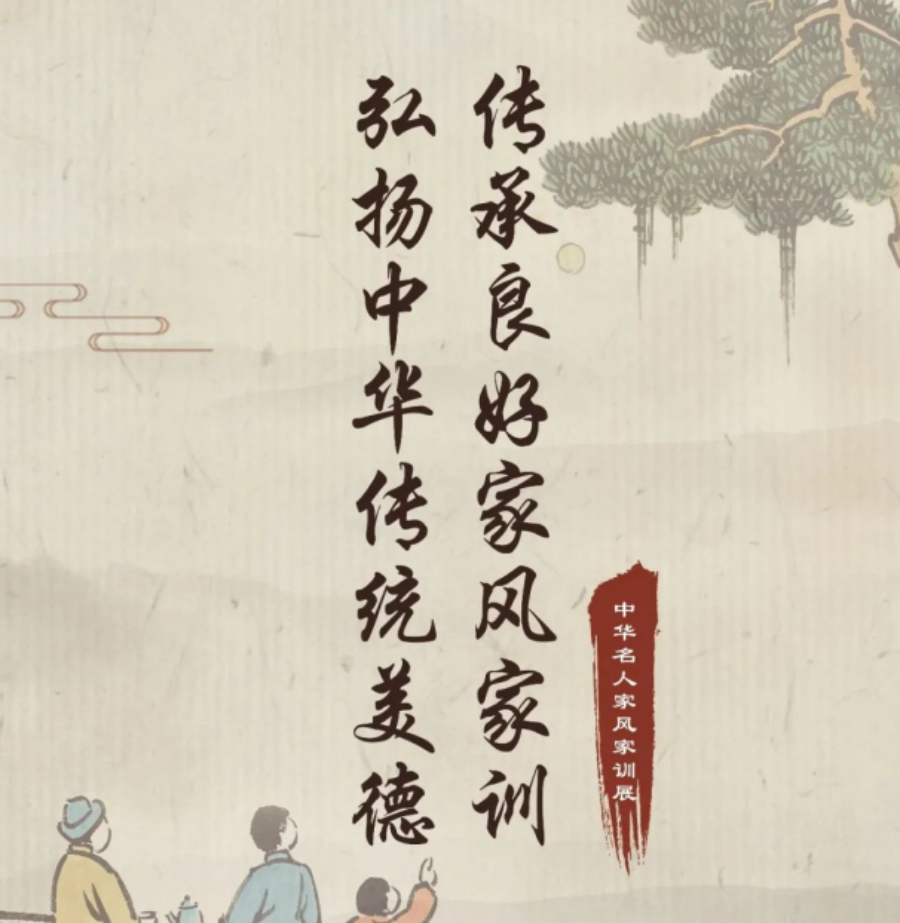 传承良好家风家训
弘扬中华传统美德
中华名人家风家训展